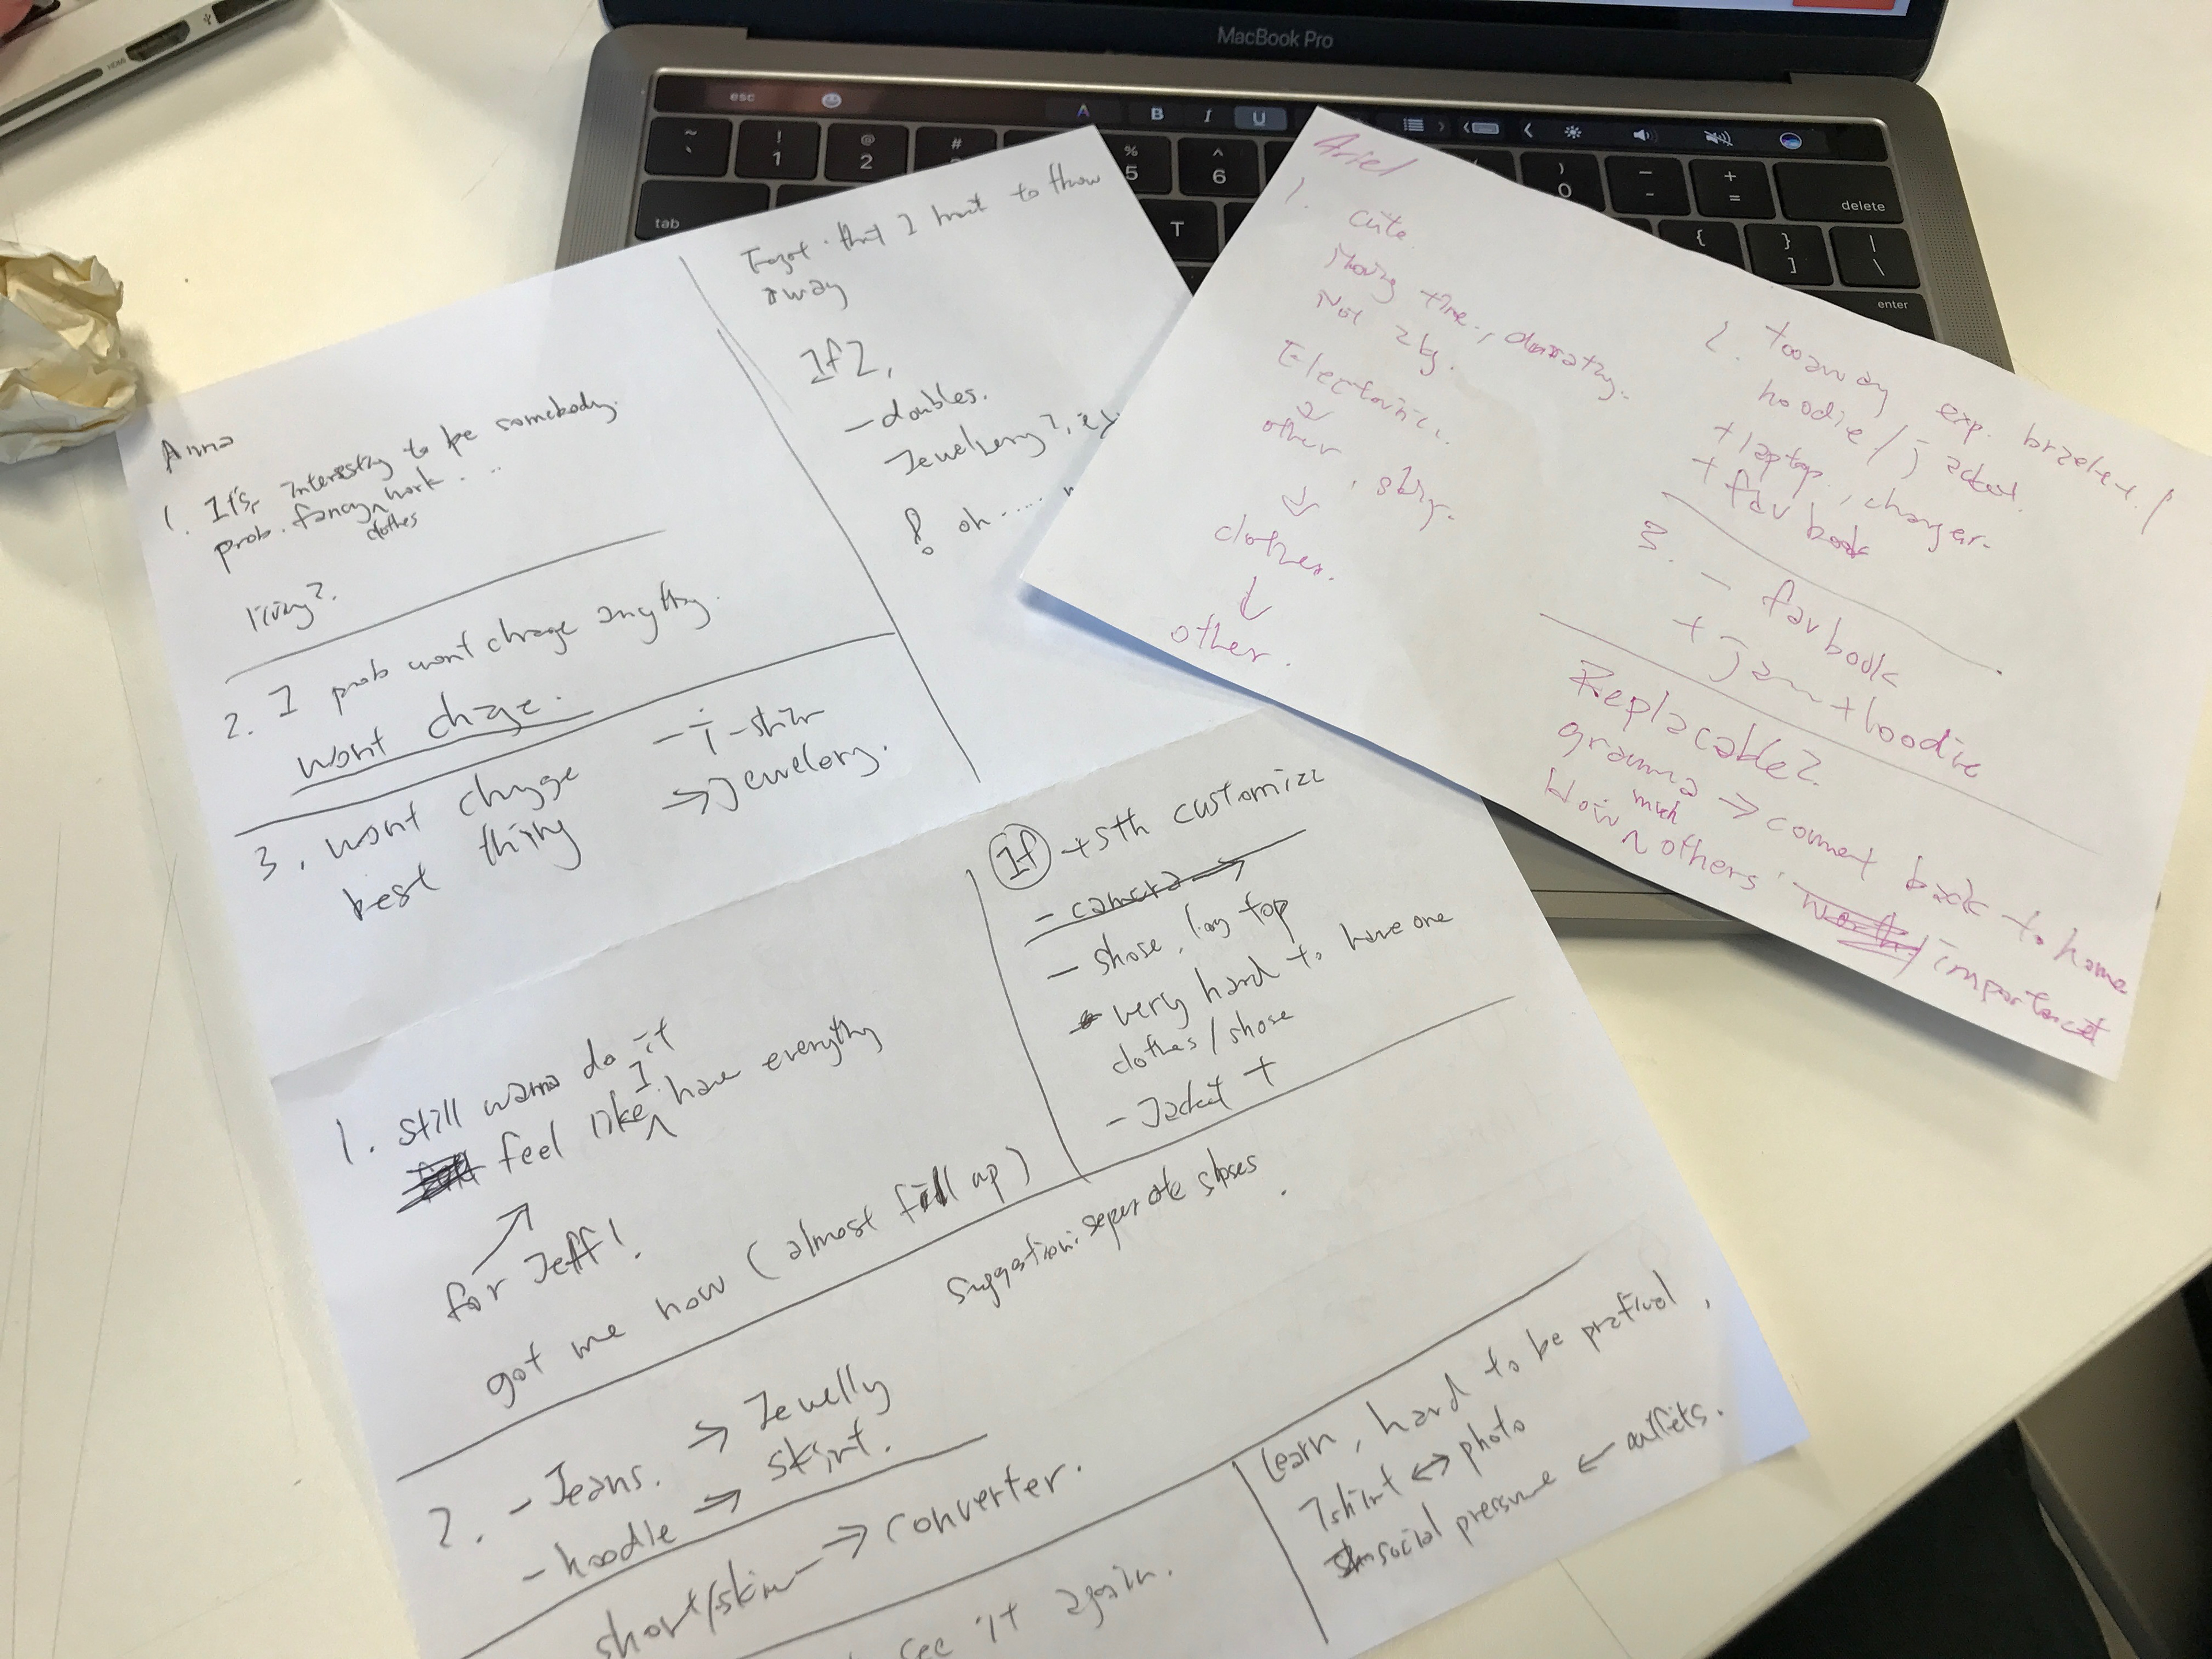 MacBook Pro
HDMI
esc
A B I U
~
`
!
1
@
2
#
%
5
^
6
)
0
_
-
+
=
delete
tab
T
{
}
]
|
\
enter
Anna
1. It's interesting to be somebody.
prob. fancy work ...
clothes
living?.
2. I prob wont change anything.
wont change.
3. wont change
best thing
- T-shirt
→ Jewelory.
that I have to throw
away
If 2,
- doubles.
oh ....
1. still wanna do it
feel like I have everything
for Jeff!
got me now (almost fill up)
2. - Jeans. → Jewelly
- hoodie → skirt.
short/skirt → converter.
see it again.
If + sth customize
- camera →
- shose, long top
very hard to have one
clothes / shose
- Jacket +
Suggestion: seperate shoses.
Learn, hard to be pratical,
Tshirt ↔ photo
social pressure ← outfits.
Ariel
1. cute.
Moving time.,
Not 2kg.
Electronic.
↓
other,
↓
clothes.
↓
other.
2. exp. brzelet!
hoodie / jacket.
+ laptop, charger.
+ fav book
3. - fav book
+ Jam + hoodie
Replacable?
gramma ⇒ connect back to home
How much others' important